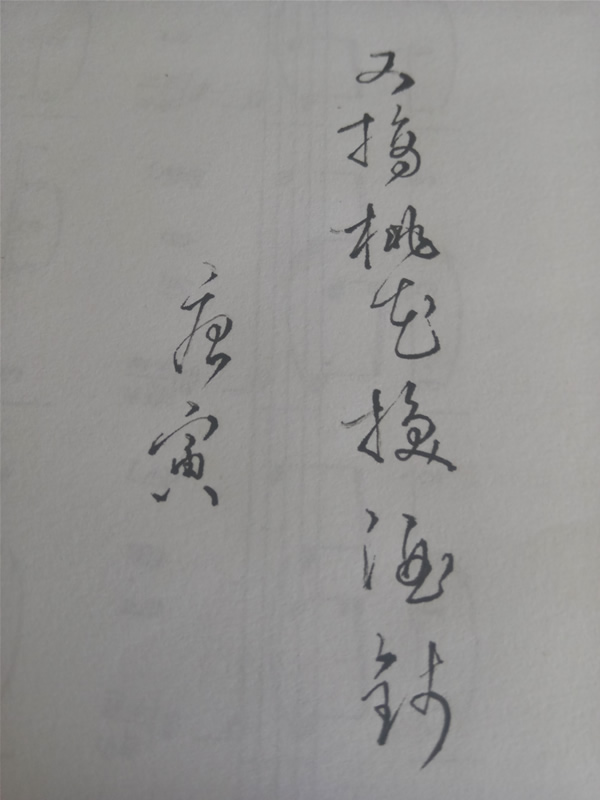 又摘桃花换酒钱
唐寅